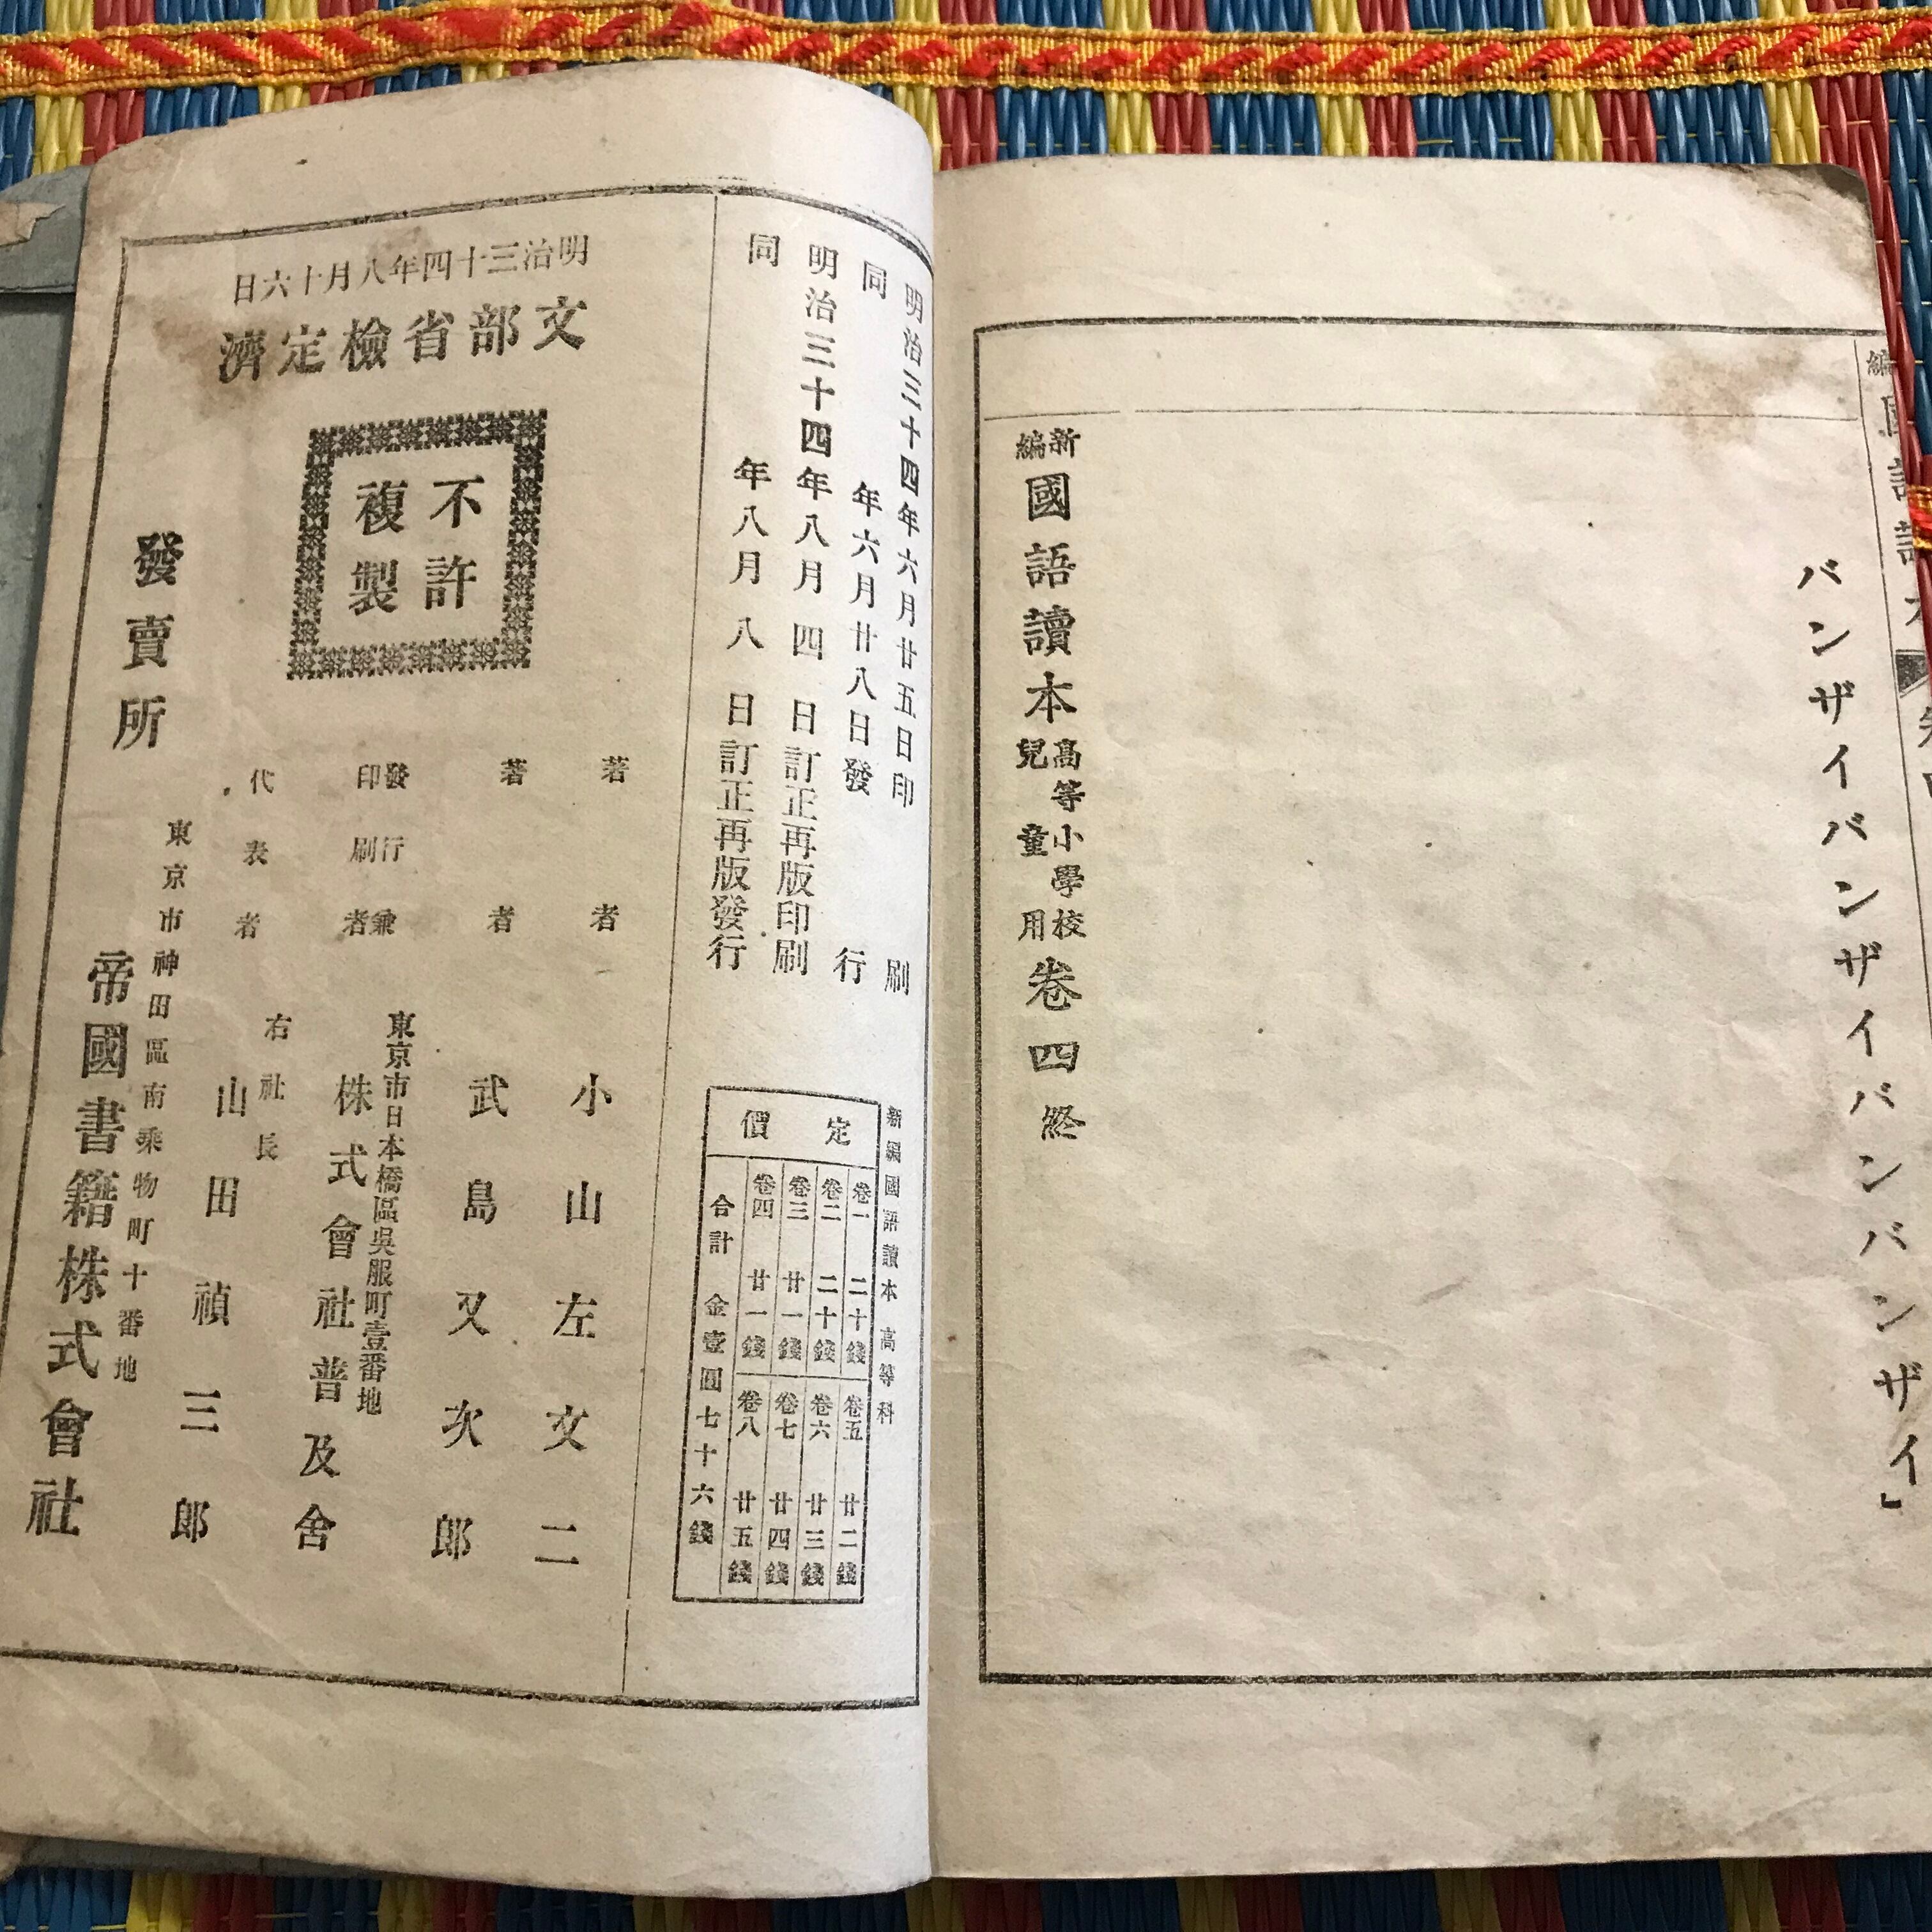 バンザイバンザイバンバンザイ」
新編國語讀本高等小學校兒童用卷四終
明治三十四年六月廿五日印刷
同年六月廿八日發行
明治三十四年八月四日訂正再版印刷
同年八月八日訂正再版發行
新編國語讀本高等科
定價
卷一二十錢
卷二二十錢
卷三廿一錢
卷四廿一錢
卷五廿二錢
卷六廿三錢
卷七廿四錢
卷八廿五錢
合計金壹圓七十六錢
明治三十四年八月十六日
文部省檢定濟
不許
複製
著者小山左文二
著者武島又次郎
發行兼
印刷者
東京市日本橋區吳服町壹番地
株式會社普及舍
右社長
代表者山田禎三郎
東京市神田區南乘物町十番地
發賣所帝國書籍株式會社